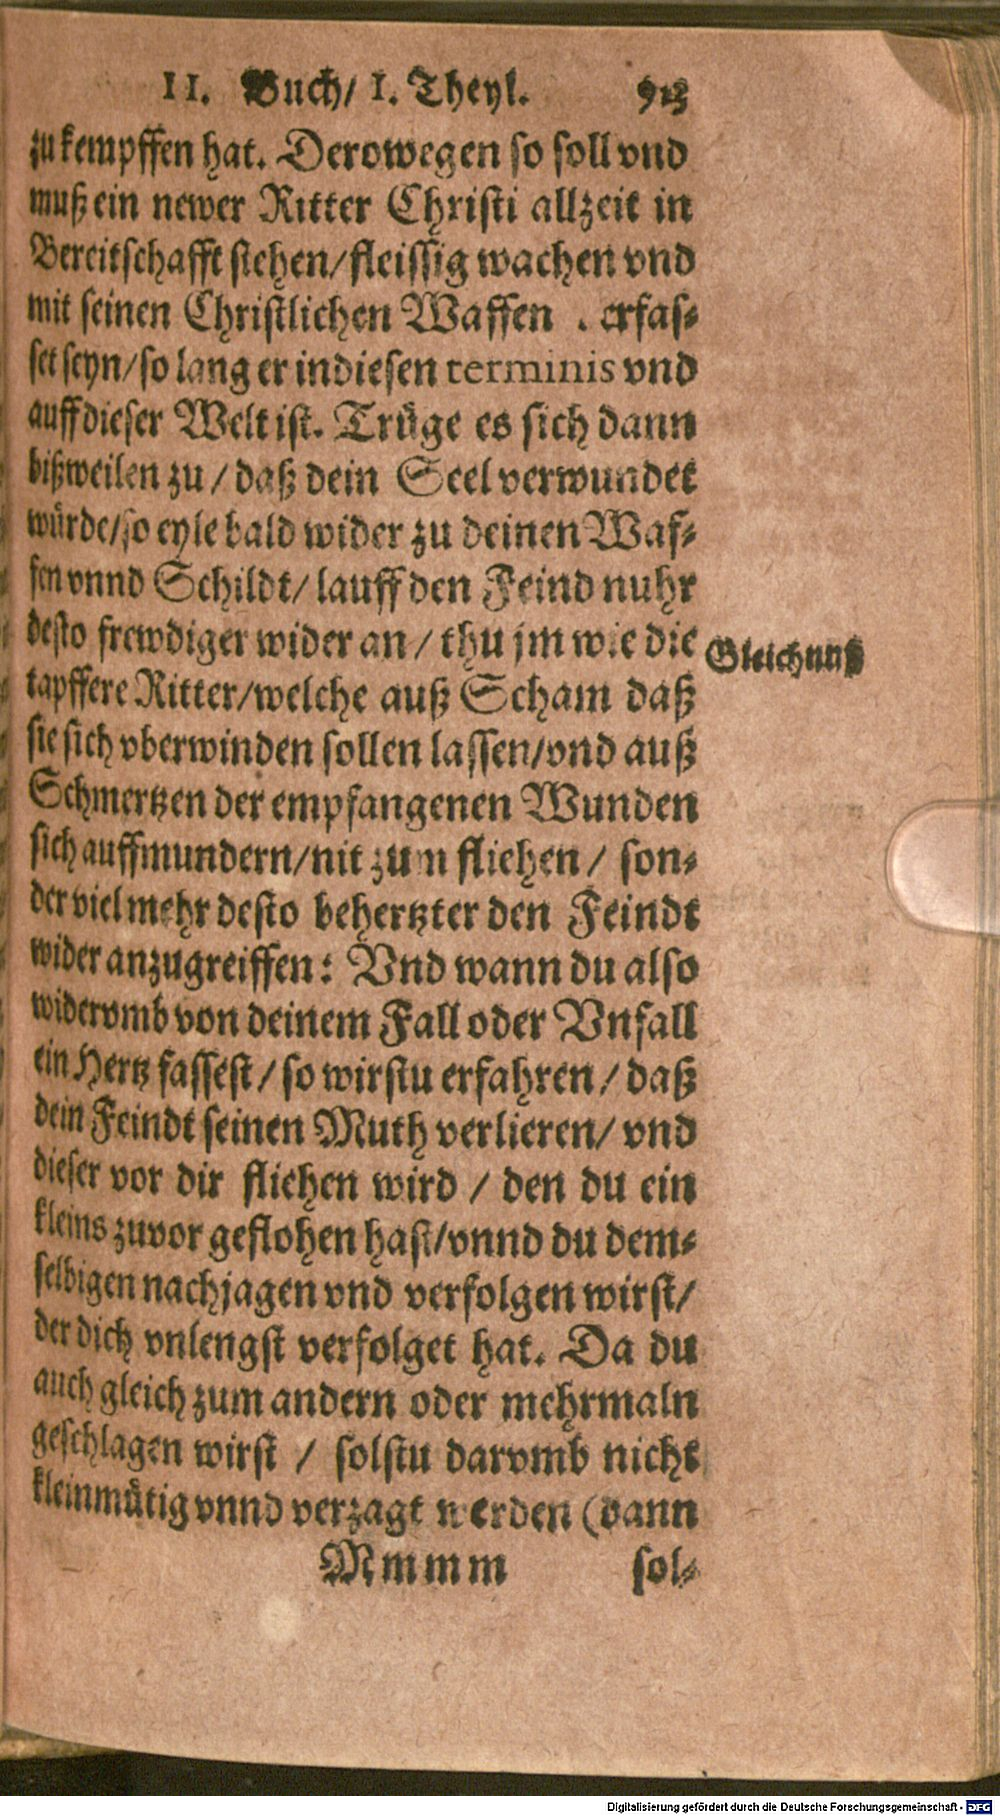 II. Buch/ I. Theyl.
zu kempffen hat. Derowegen so soll vnd
muß ein newer Ritter Christi allzeit in
Bereitschafft stehen/fleissig wachen vnd
mit seinen Christlichen Waffen . erfas-
set seyn/so lang er in diesen terminis vnd
auff dieser Welt ist. Trüge es sich dann
bißweilen zu / daß dein Seel verwundet
würde/so eyle bald wider zu deinen Waf-
fen vnnd Schildt/ lauff den Feind nuhr
desto frewdiger wider an / thu jm wie die
Gleichnuß
tapffere Ritter/welche auß Scham daß
sie sich vberwinden sollen lassen/vnd auß
Schmertzen der empfangenen Wunden
sich auffmundern/nit zum fliehen / son-
der viel mehr desto behertzter den Feindt
wider anzugreiffen: Vnd wann du also
widervmb von deinem Fall oder Vnfall
ein Hertz fassest / so wirstu erfahren / daß
dein Feindt seinen Muth verlieren/ vnd
dieser vor dir fliehen wird / den du ein
kleins zuvor geflohen hast/vnnd du dem-
selbigen nachjagen vnd verfolgen wirst/
der dich vnlengst verfolget hat. Da du
auch gleich zum andern oder mehrmaln
geschlagen wirst / solstu darvmb nicht
kleinmütig vnnd verzagt werden (dann
Mmmm sol-
Digitalisierung gefördert durch die Deutsche Forschungsgemeinschaft - DFG